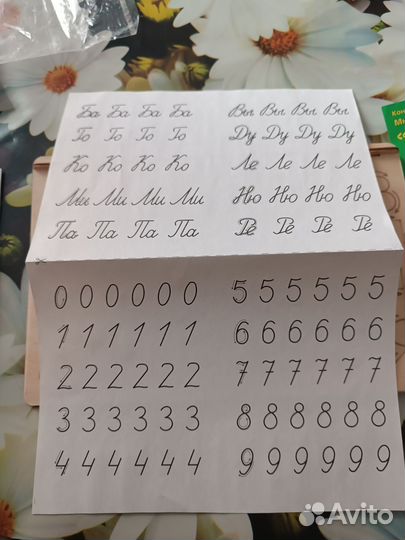 Ба Ба Ба Ба Вы Вы Вы Вы
Го Го Го Го Ду Ду Ду Ду
Ко Ко Ко Ко Ле Ле Ле Ле
Ми Ми Ми Ми Ню Ню Ню Ню
Па Па Па Па Рё Рё Рё Рё
0 0 0 0 0 0 5 5 5 5 5 5
1 1 1 1 1 1 6 6 6 6 6 6
2 2 2 2 2 2 7 7 7 7 7 7
3 3 3 3 3 3 8 8 8 8 8 8
4 4 4 4 4 4 9 9 9 9 9 9
Avito